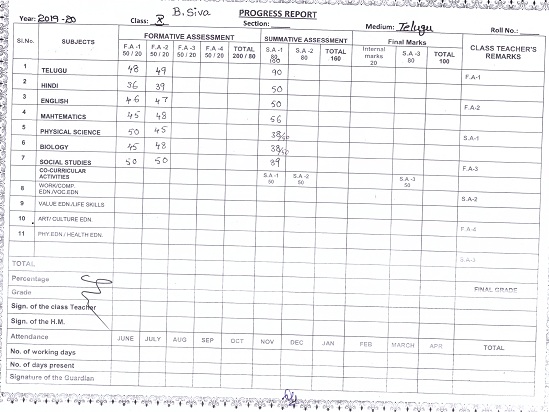 B. Siva PROGRESS REPORT
Year: 2019-20 Class: Section: Medium: Telugu Roll No.:
Sl.No. SUBJECTS FORMATIVE ASSESSMENT SUMMATIVE ASSESSMENT Final Marks CLASS TEACHER'S REMARKS
F.A -1 50 / 20 F.A -2 50 / 20 F.A -3 50 / 20 F.A -4 50 / 20 TOTAL 200 / 80 S.A -1 80 100 S.A -2 80 TOTAL 160 Internal marks 20 S.A -3 80 TOTAL 100
1 TELUGU 48 49 90 F.A-1
2 HINDI 36 39 50
3 ENGLISH 46 47 50 F.A-2
4 MAHTEMATICS 45 48 56
5 PHYSICAL SCIENCE 50 45 38/50 S.A-1
6 BIOLOGY 45 48 38/50
7 SOCIAL STUDIES 50 50 89 F.A-3
CO-CURRICULAR ACTIVITIES S.A -1 50 S.A -2 50 S.A -3 50
8 WORK/COMP. EDN./VOC.EDN S.A-2
9 VALUE EDN./LIFE SKILLS
10 ART/ CULTURE EDN. F.A-4
11 PHY.EDN./ HEALTH EDN.
TOTAL S.A-3
Percentage
Grade FINAL GRADE
Sign. of the class Teacher
Sign. of the H.M.
Attendance JUNE JULY AUG SEP OCT NOV DEC JAN FEB MARCH APR TOTAL
No. of working days
No. of days present
Signature of the Guardian